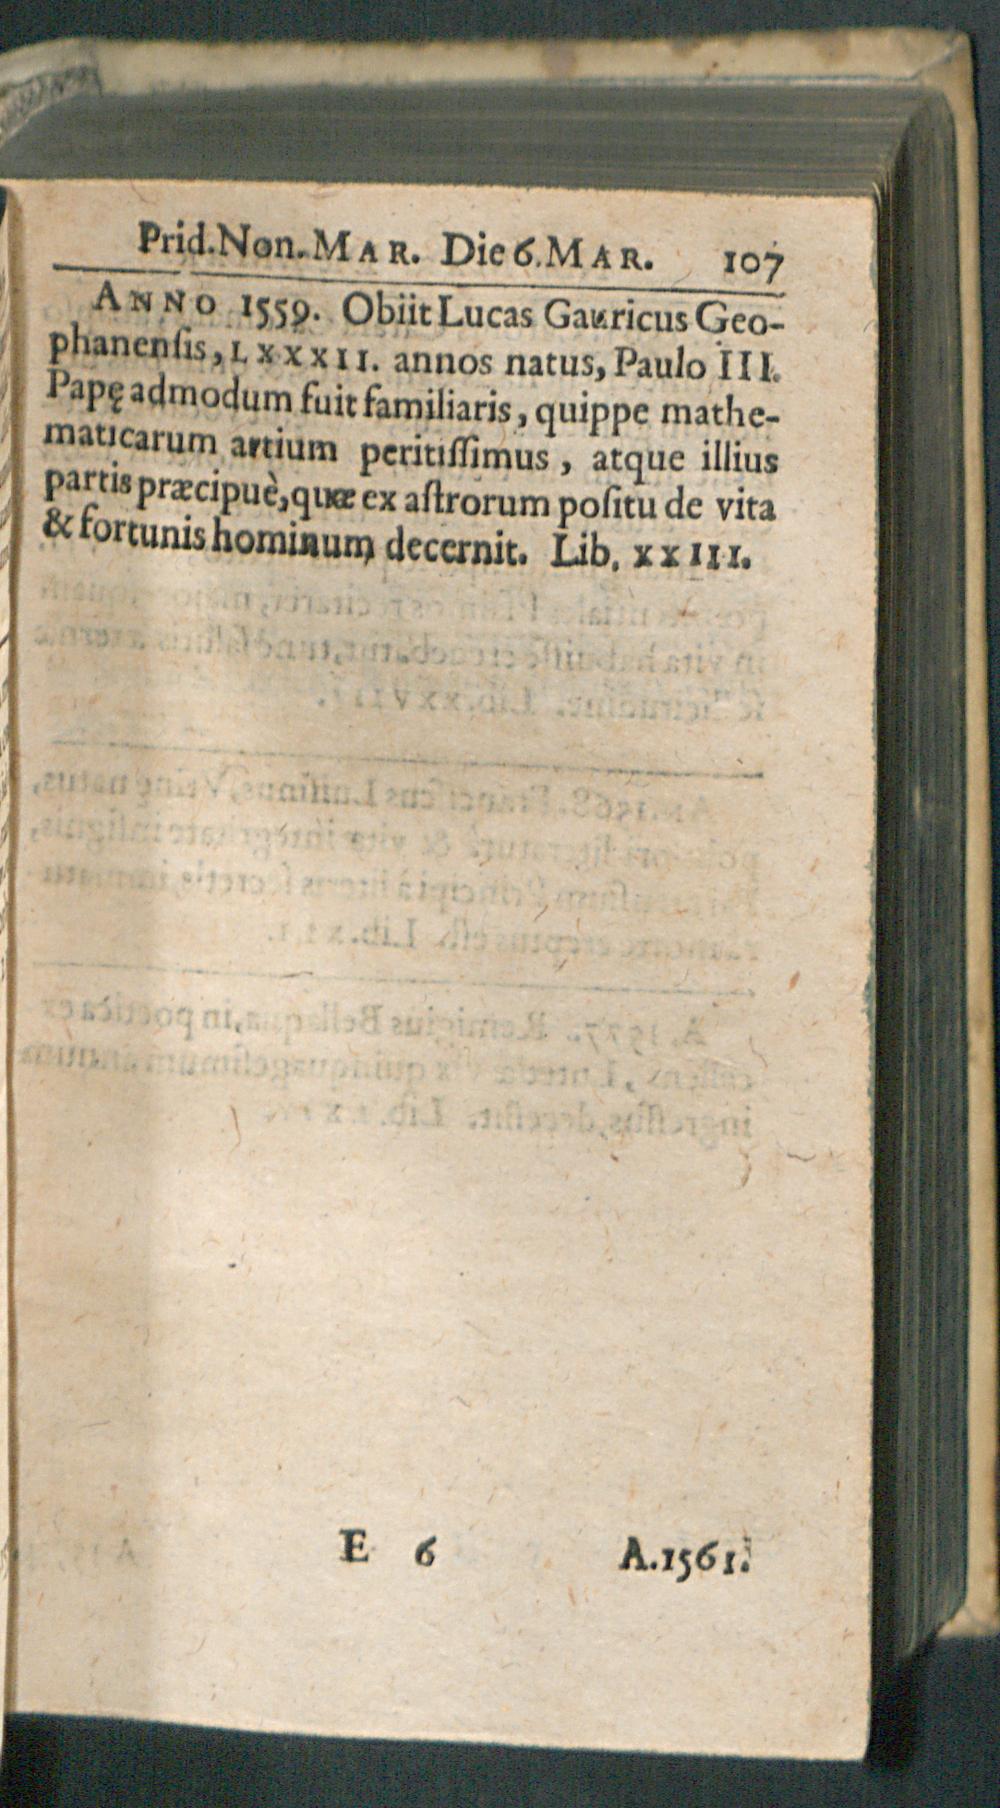 Prid.Non. MAR. Die 6. MAR. 107
ANNO 1559. Obiit Lucas Gauricus Geo-
phanenſis, LXXXII. annos natus, Paulo III.
Papę admodum fuit familiaris, quippe mathe-
maticarum artium peritiſſimus, atque illius
partis præcipuè, quæ ex aſtrorum poſitu de vita
& fortunis hominum decernit. Lib. XXIII.
E 6 A.1561.